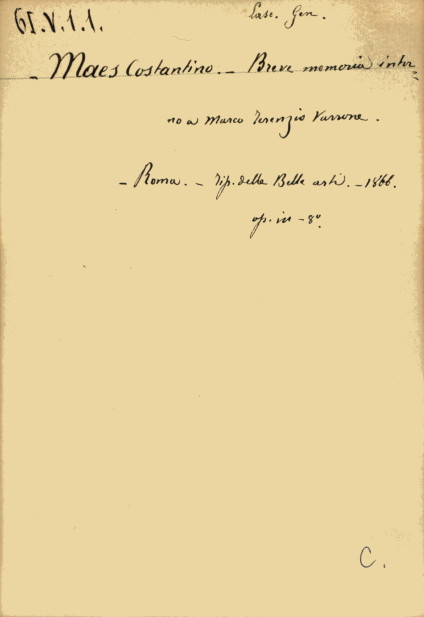 61.V.1.1.
Lasc. Gen.
- Maes Costantino. - Breve memoria inter-
no a Marco Terenzio Varrone.
- Roma. - Tip. delle Belle arti. - 1866.
op. in - 8º.
C.